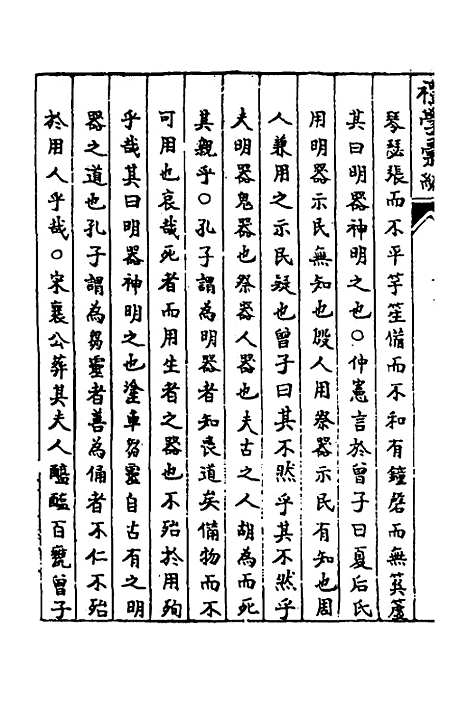 禮學彙編
琴瑟張而不平竽笙備而不和有鐘磬而無簨虡
其曰明器神明之也〇仲憲言於曾子曰夏后氏
用明器示民無知也殷人用祭器示民有知也周
人兼用之示民疑也曾子曰其不然乎其不然乎
夫明器鬼器也祭器人器也夫古之人胡為而死
其親乎〇孔子謂為明器者知喪道矣備物而不
可用也哀哉死者而用生者之器也不殆於用殉
乎哉其曰明器神明之也塗車芻靈自古有之明
器之道也孔子謂為芻靈者善為俑者不仁不殆
於用人乎哉〇宋襄公葬其夫人醯醢百甕曾子